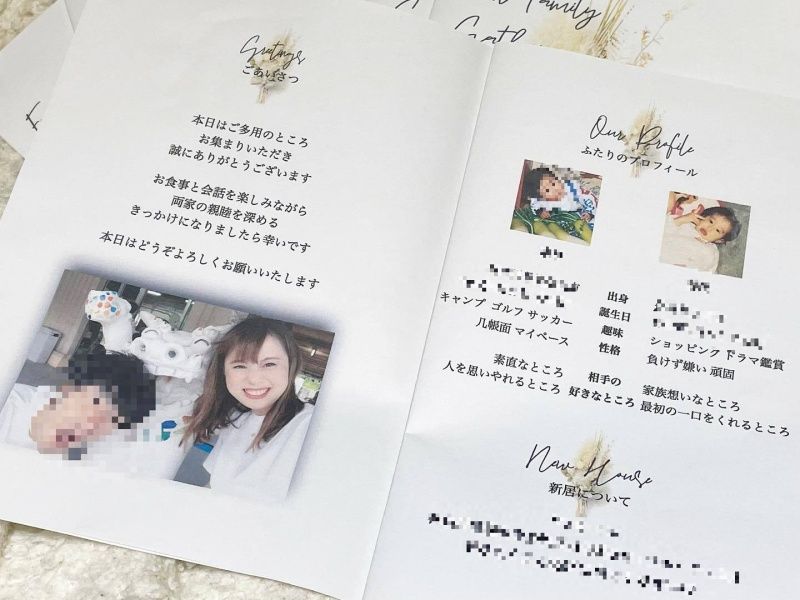 Family
Greetings
ごあいさつ
本日はご多用のところ
お集まりいただき
誠にありがとうございます
お食事と会話を楽しみながら
両家の親睦を深める
きっかけになりましたら幸いです
本日はどうぞよろしくお願いいたします
Our Profile
ふたりのプロフィール
出身
誕生日
キャンプ ゴルフ サッカー 趣味 ショッピング ドラマ鑑賞
几帳面 マイペース 性格 負けず嫌い 頑固
素直なところ 相手の 家族想いなところ
人を思いやれるところ 好きなところ 最初の一口をくれるところ
New House
新居について